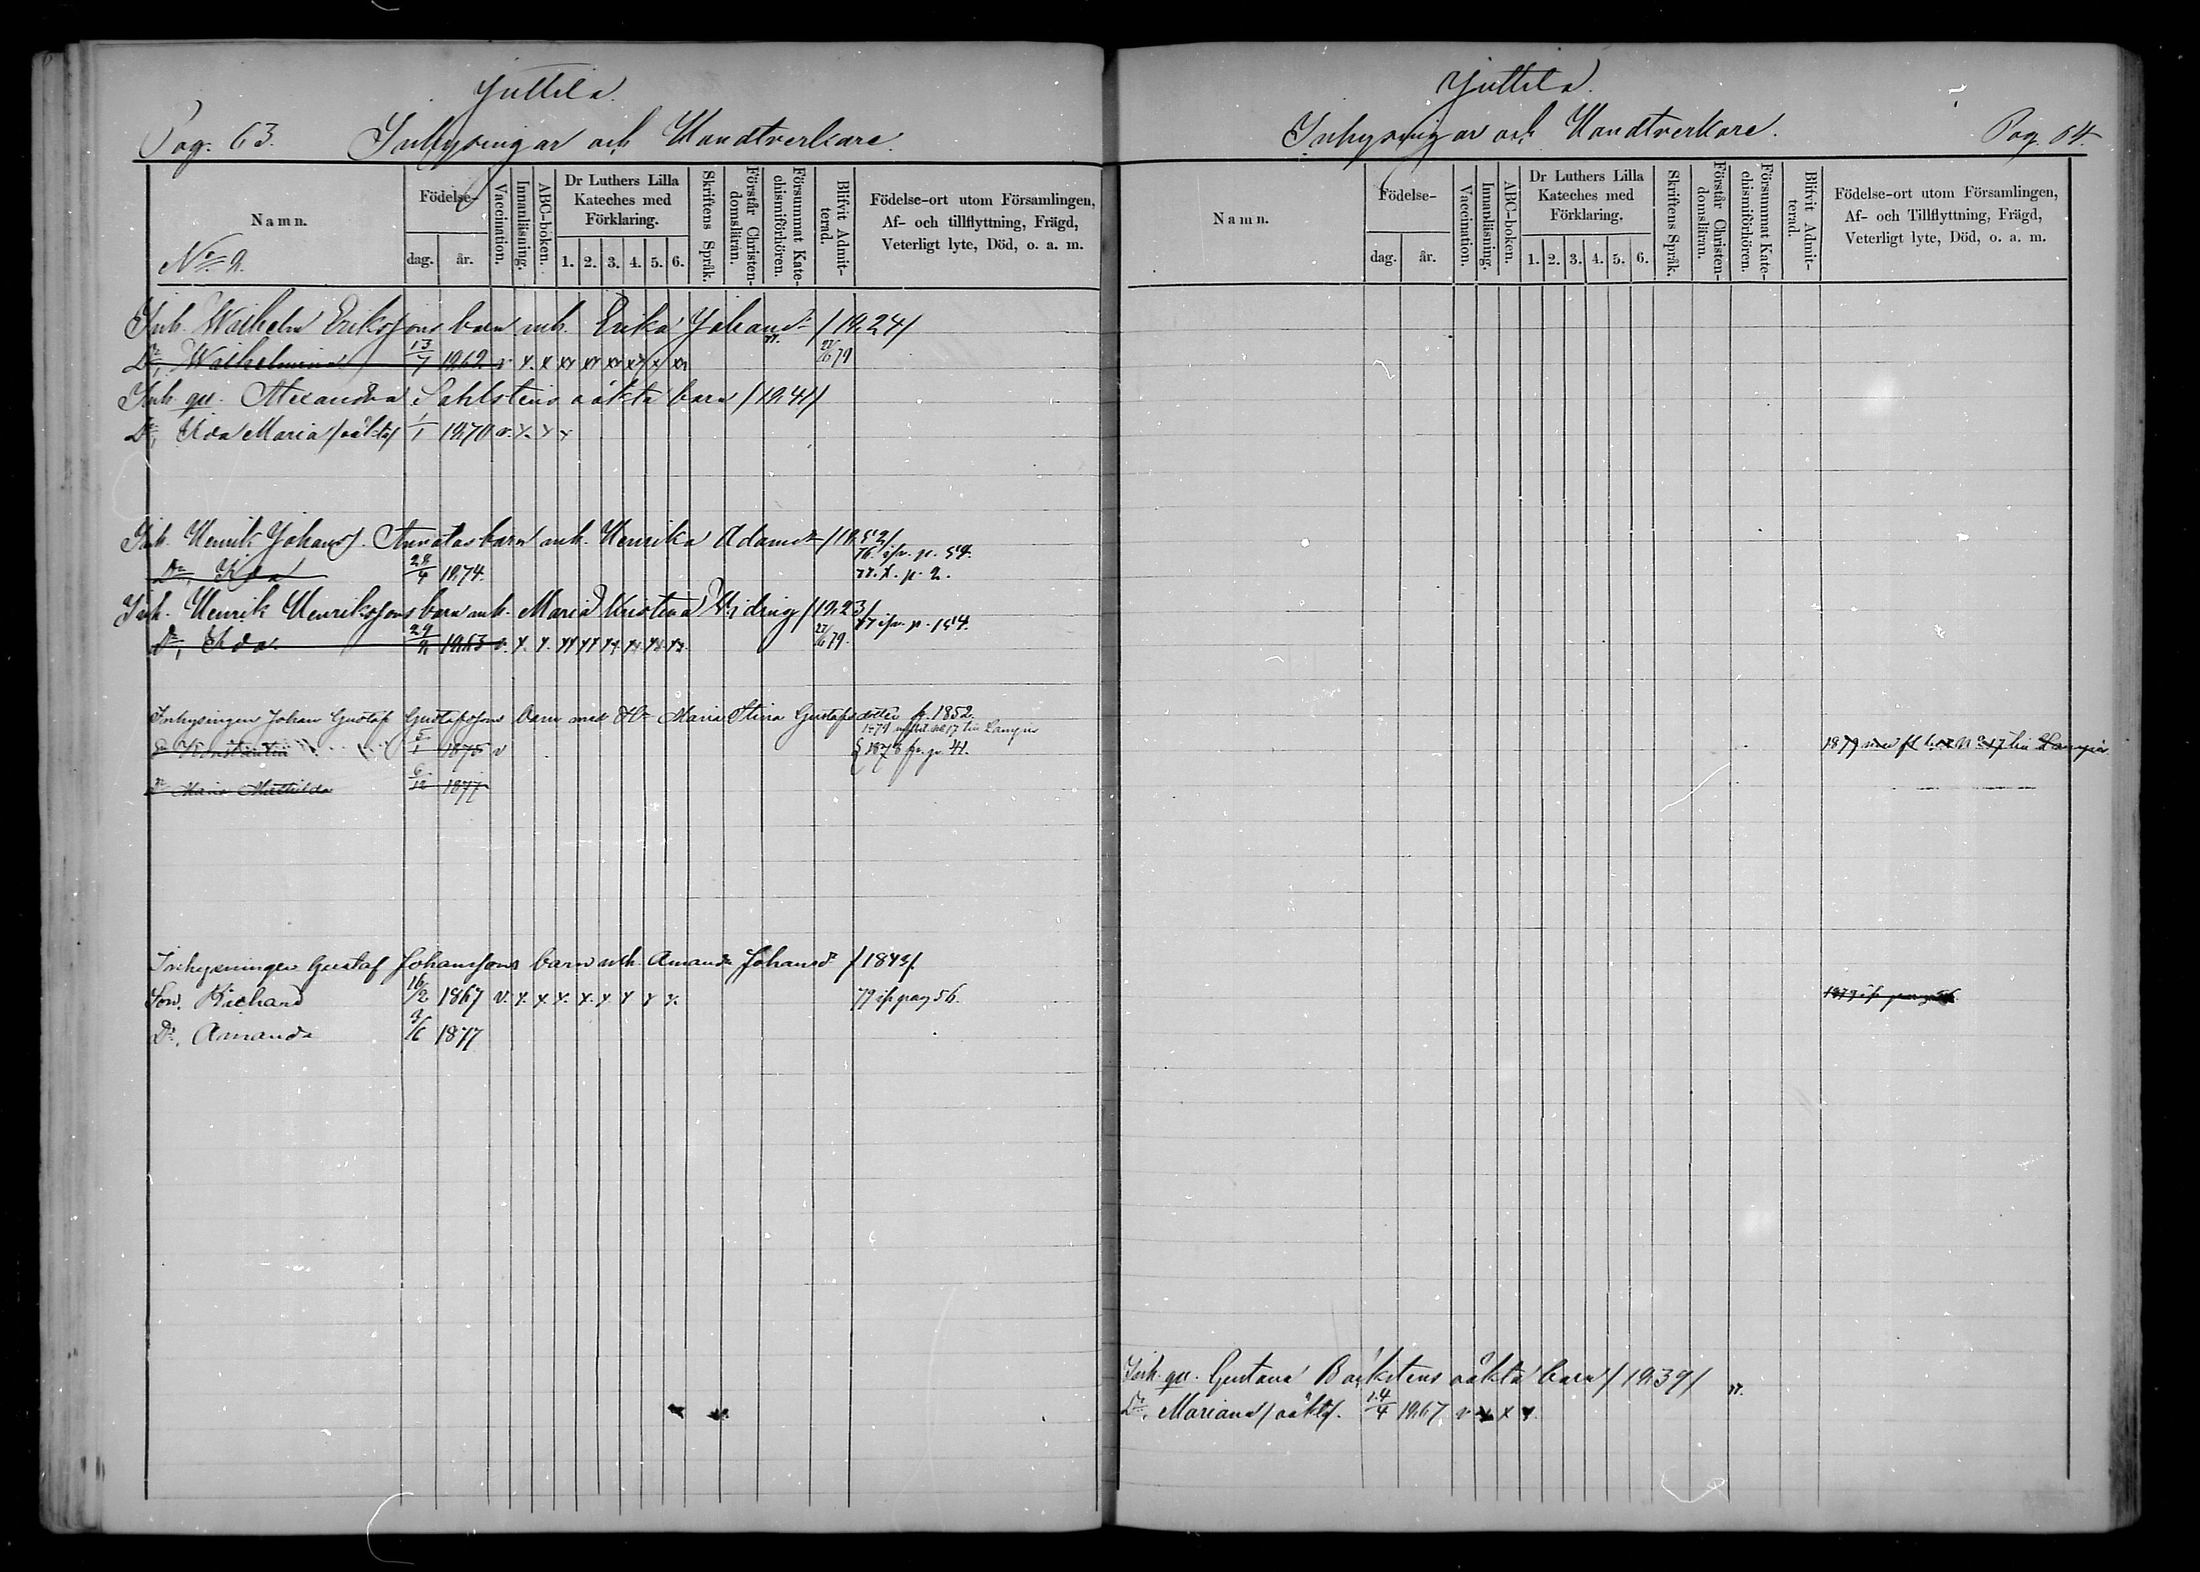 Juttila.
Pag. 63. Inhysingar och Handtverkare.
Namn.
Födelse-
dag.
år.
Vaccination.
Innanläsning.
ABC-boken.
Dr Luthers Lilla Kateches med Förklaring.
1. 2. 3. 4. 5. 6.
Skriftens Språk.
Förstår Christendomsläran.
Försummat Katechismiförhören.
Blifvit Admitterad.
Födelse-ort utom Församlingen,
Af- och tillflyttning, Frägd,
Veterligt lyte, Död, o. a. m.
Inh. Wilhelm Erikssons barn mh. Erika Johansd:r /1824/
D:r, Wilhelmina 13/7 1862 v x x xx xx xx xx x xx 79
Inh. qv. Alexandra Sahlstens oäkta barn /1841/
D:r, Ida Maria /oäkta/ 1/1 1870 v. x. x x
Inh. Henrik Johanss. Annalas barn mh. Henrika Adamsd:r /1852/
76. ifr. p. 59.
D:r, Ida 28/4 1874.
77. t. p. 2.
Inh. Henrik Henrikssons barn mh. Maria Kristina Widing /1823/
77 ifr. p. 154.
D:r, Ida. 29/8 1863 v. x. x. xx xx xx xx xx xx 79.
Inhysingen Johan Gustaf Gustafssons barn med H:u Maria Stina Gustafsdotter f. 1852.
S. Konstantin 5/1 1875 v
1878 fr. p. 41.
D:r Maria Mathilda 6/12 1877
Inhysningen Gustaf Johanssons barn mh. Amanda Johansd:r /1843/.
Son, Richard 16/2 1867 v. x. x x. x. x x x x.
79 ifr pag 56.
D:r, Amanda 3/6 1877
Juttila.
Inhysingar och Handtverkare. Pag. 64.
Namn.
Födelse-
dag.
år.
Vaccination.
Innanläsning.
ABC-boken.
Dr Luthers Lilla Kateches med Förklaring.
1. 2. 3. 4. 5. 6.
Skriftens Språk.
Förstår Christendomsläran.
Försummat Katechismiförhören.
Blifvit Admitterad.
Födelse-ort utom Församlingen,
Af- och Tillflyttning, Frägd,
Veterligt lyte, Död, o. a. m.
1879
1879 ifr pag 56
Inh. qv. Gustava Bäckstens oäkta barn /1839/
D:r, Mariana /oäkta/. 14/4 1867 v x x x